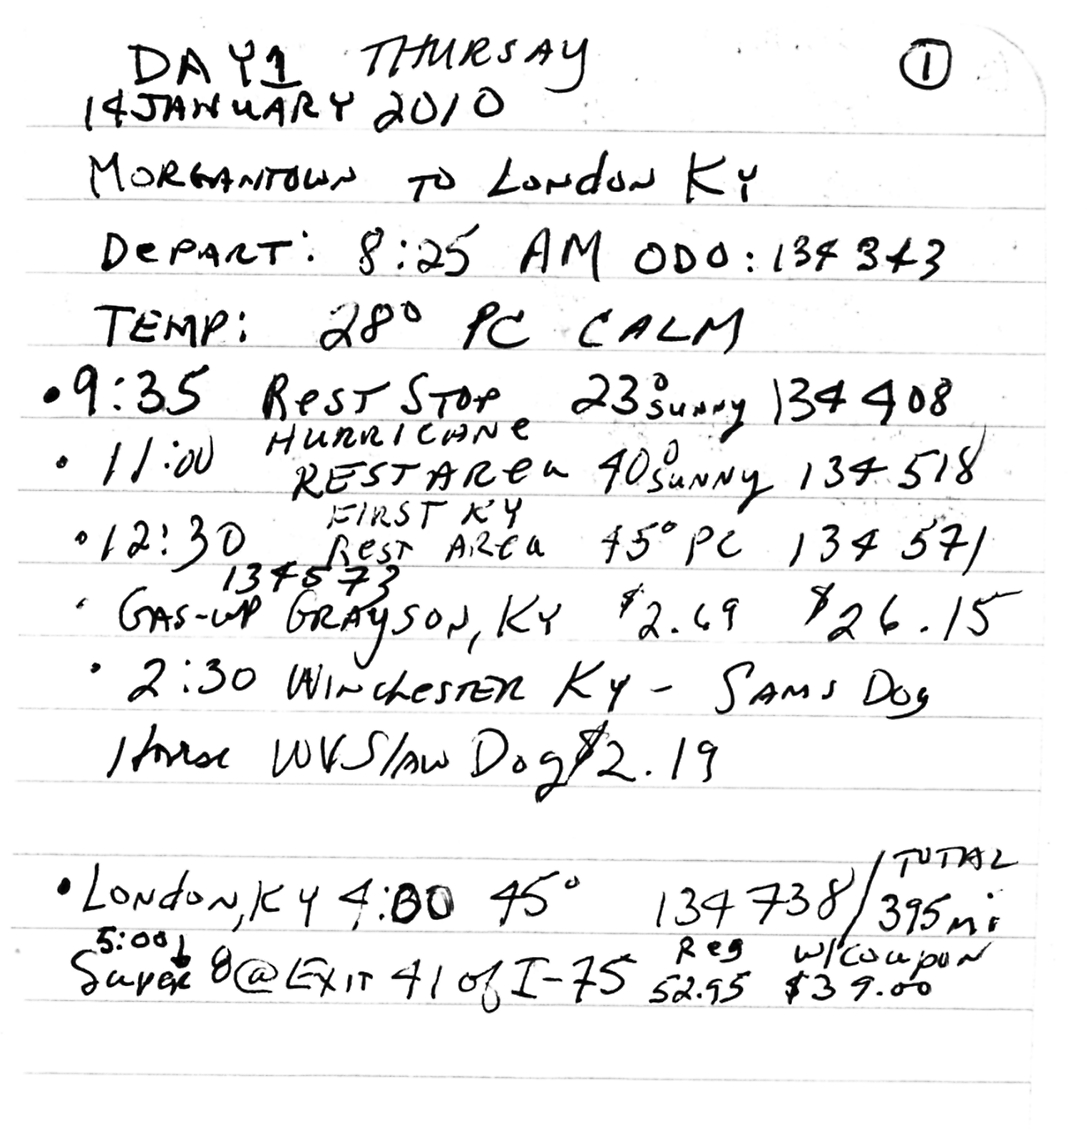 DAY 1 THURSAY
①
14 JANUARY 2010
MORGANTOWN TO LONDON KY
DEPART: 8:25 AM ODO: 134 343
TEMP: 28° PC CALM
• 9:35 REST STOP 23° SUNNY 134 408
• 11:00 HURRICANE
REST AREA 40° SUNNY 134 518
• 12:30 FIRST KY
REST AREA 45° PC 134 571
134573
• GAS-UP GRAYSON, KY $2.69 $26.15
• 2:30 WINCHESTER KY - SAMS DOG
House WV Slaw Dog $2.19
• LONDON, KY 4:00 45° 134 738 / TOTAL
395 mi
5:00↓ Reg w/coupon
Super 8 @ EXIT 41 of I-75 52.95 $39.00